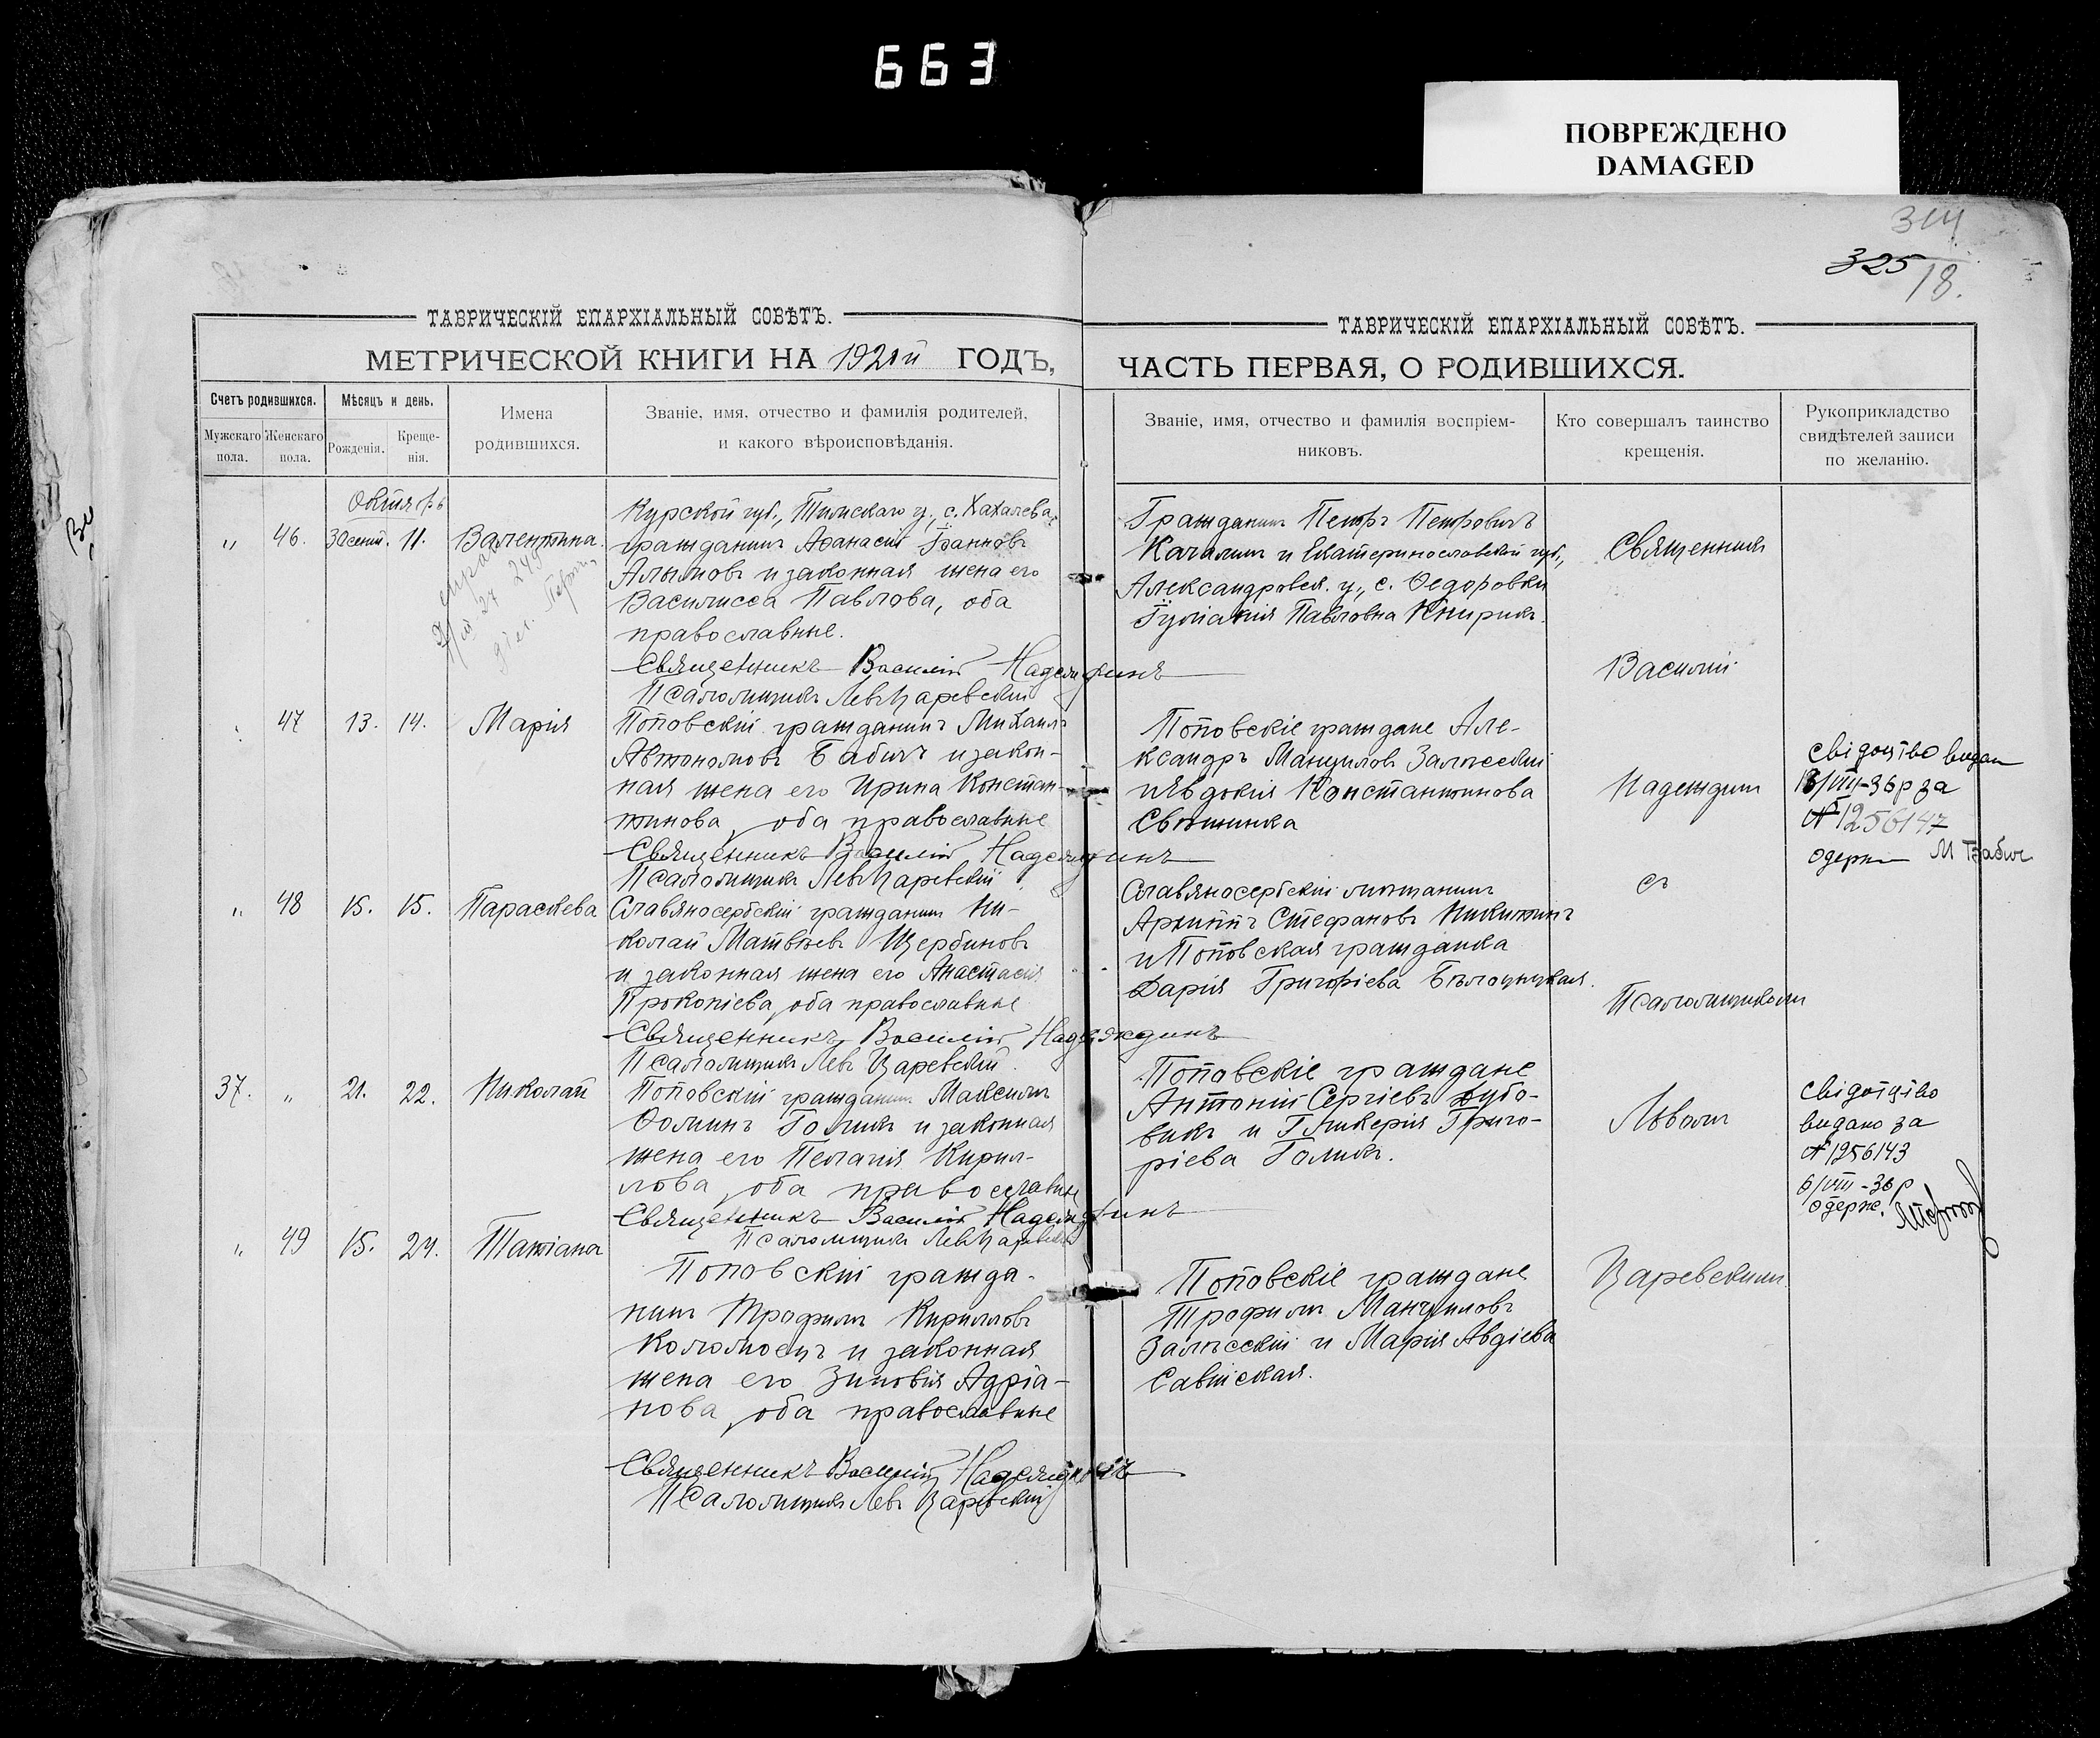 663
ПОВРЕЖДЕНО
DAMAGED
314
325
18.
ТАВРИЧЕСКІЙ ЕПАРХІАЛЬНЫЙ СОВѢТЪ.
МЕТРИЧЕСКОЙ КНИГИ НА 1921й ГОДЪ,
Счетъ родившихся.
Мужскаго пола.
Женскаго пола.
Мѣсяцъ и день.
Рожденія.
Креще-
нія.
Имена
родившихся.
Званіе, имя, отчество и фамилія родителей,
и какого вѣроисповѣданія.
ТАВРИЧЕСКІЙ ЕПАРХІАЛЬНЫЙ СОВѢТЪ.
ЧАСТЬ ПЕРВАЯ, О РОДИВШИХСЯ.
Званіе, имя, отчество и фамилія воспріем-
никовъ.
Кто совершалъ таинство
крещенія.
Рукоприкладство
свидѣтелей записи
по желанію.
Октябрь
„ 46. 30 сент. 11. Валентина.
Курской губ., Тимскаго у., с. Хахалева,
гражданинъ Аѳанасій Іоанновъ
Алымовъ и законная жена его
Василисса Павлова, оба
православные.
Священникъ Василій Надеждинъ
Псаломщикъ Левъ Царевскій
Гражданинъ Петръ Петровичъ
Качалинъ и Екатеринославской губ.,
Александровск. у., с. Ѳедоровки
Іуліанія Павловна Книрикъ.
Священникъ
Василій
„ 47 13. 14. Марія
Поповскій гражданинъ Михаилъ
Автономовъ Бабичъ и закон-
ная жена его Ирина Констан-
тинова, оба православные
Священникъ Василій Надеждинъ
Псаломщикъ Левъ Царевскій
Поповскіе граждане Але-
ксандръ Мануиловъ Залѣсскій
и Евдокія Константинова
Свѣтинка
Надеждинъ
Свідоцтво видан
VIII-36р за
№ 1256147
одерж М Бабич
„ 48 15. 15. Параскева
Славяносербскій гражданинъ Ни-
колай Матвѣевъ Щербиновъ
и законная жена его Анастасія
Прокопіева, оба православные
Священникъ Василій Надеждинъ
Псаломщикъ Левъ Царевскій.
Славяносербскій мѣщанинъ
Архиппъ Стефановъ Никитинъ
и Поповская гражданка
Дарія Григоріева Бѣлоцицкая.
съ
Псаломщикомъ
37. „ 21. 22. Николай
Поповскій гражданинъ Максимъ
Ѳоминъ Голикъ и законная
жена его Пелагія Кирил-
лова, оба православные
Священникъ Василій Надеждинъ
Псаломщикъ Левъ Царевскій
Поповскіе граждане
Антоній Сергіевъ Дубо-
викъ и Гликерія Григо-
ріева Голикъ.
Львомъ
Свідотцтво
видано за
№ 1256143
6/VIII-36р
одерж.
„ 49 15. 24. Татіана
Поповскій гражда-
нинъ Трофимъ Кирилловъ
Коломоецъ и законная
жена его Зиновія Адріа-
нова, оба православные
Священникъ Василій Надеждинъ
Псаломщикъ Левъ Царевскій
Поповскіе граждане
Трофимъ Мануиловъ
Залѣсскій и Марія Авдіева
Савійская.
Царевскимъ